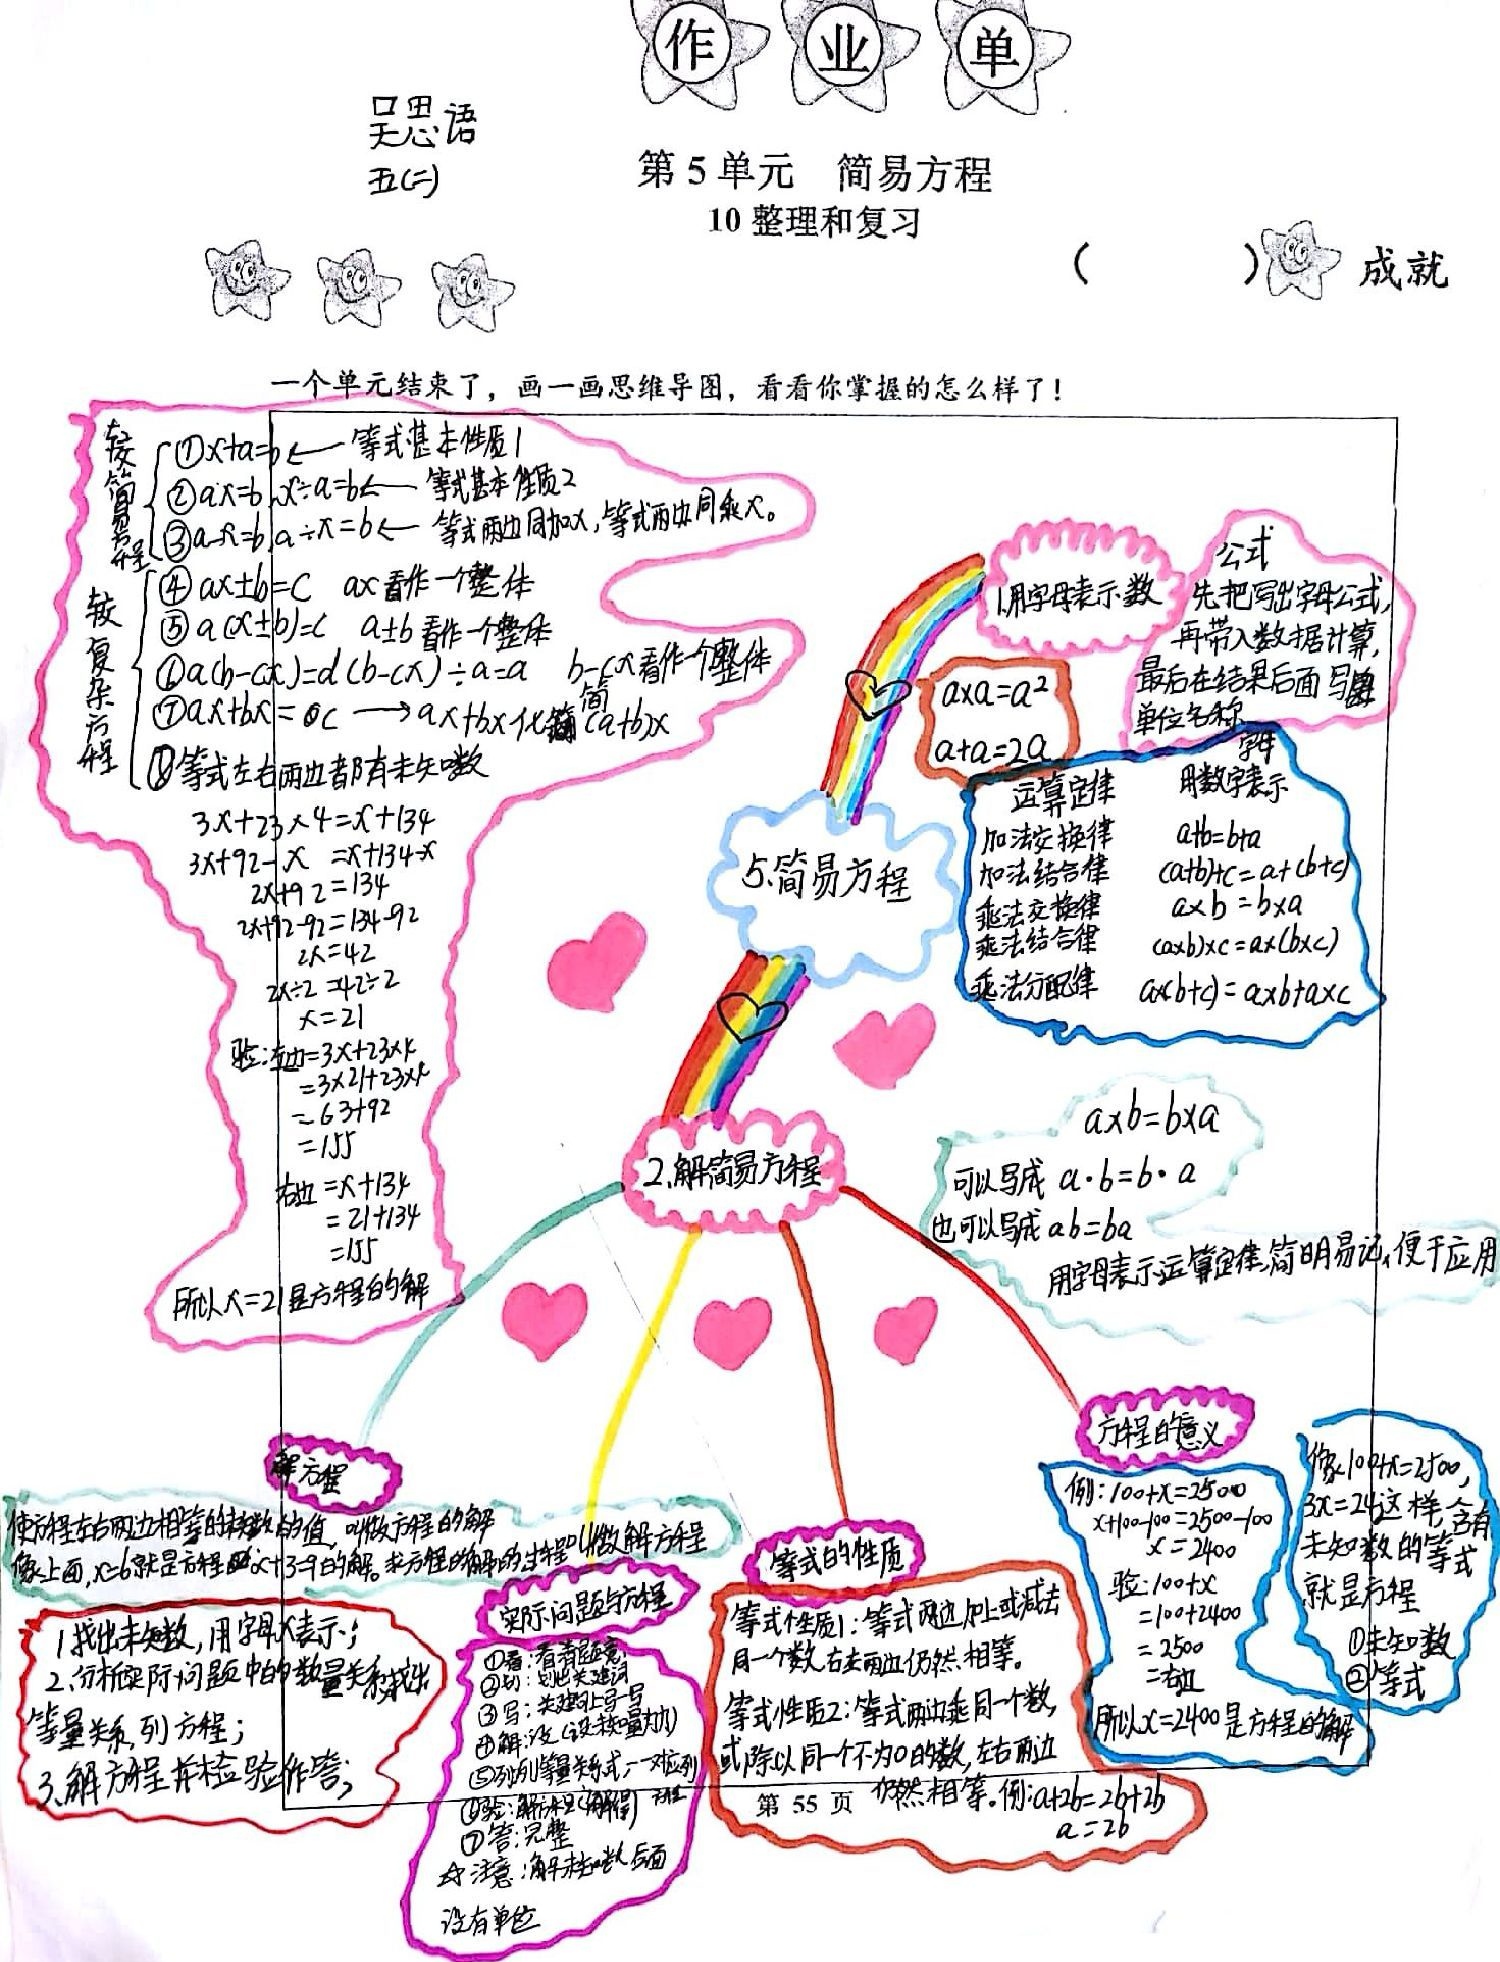 作业单
吴思语
五(二)
第5单元 简易方程
10整理和复习
( )成就
一个单元结束了，画一画思维导图，看看你掌握的怎么样了！
较简易方程
①x+a=b← 等式基本性质1
②ax=b x÷a=b← 等式基本性质2
③a-x=b a÷x=b← 等式两边同加x，等式两边同乘x。
较复杂方程
④ax±b=c ax看作一个整体
⑤a(x±b)=c a±b看作一个整体
⑥a(b-cx)=d(b-cx)÷a=a b-cx看作一个整体
⑦ax+bx=c→ax+bx化简(a+b)x
⑧等式左右两边都有未知数
3x+23×4=x+134
3x+92-x=x+134-x
2x+92=134
2x+92-92=134-92
2x=42
2x÷2=42÷2
x=21
验:左边=3x+23×4
=3×21+23×4
=63+92
=155
右边=x+134
=21+134
=155
所以x=21是方程的解
5.简易方程
1.用字母表示数
公式
先把写出字母公式，
再带入数据计算，
最后在结果后面写
单位名称
a×a=a²
a+a=2a
运算定律 用字母表示
加法交换律 a+b=b+a
加法结合律 (a+b)+c=a+(b+c)
乘法交换律 a×b=b×a
乘法结合律 (a×b)×c=a×(b×c)
乘法分配律 a×(b+c)=a×b+a×c
a×b=b×a
可以写成 a·b=b·a
也可以写成 ab=ba
用字母表示运算定律，简明易记，便于应用
2.解简易方程
解方程
使方程左右两边相等的未知数的值，叫做方程的解
像上面，x=6就是方程x+3=9的解。求方程的解的过程叫做解方程
1.找出未知数，用字母x表示；
2.分析实际问题中的数量关系，找出
等量关系，列方程；
3.解方程并检验作答；
实际问题与方程
①看:看清题意
②划:划出关键词
③写:关键句上写一写
④解:设
⑤列:列等量关系式，一一对应列
⑦答:完整
☆注意:解未知数后面
没有单位
等式的性质
等式性质1:等式两边加上或减去
同一个数，左右两边仍然相等。
等式性质2:等式两边乘同一个数，
或除以同一个不为0的数，左右两边
仍然相等。例:a+2b=2b+2b
a=2b
方程的意义
例:100+x=2500
x+100-100=2500-100
x=2400
验:100+x
=100+2400
=2500
=右边
所以x=2400是方程的解
像100+x=2500，
3x=24这样，含有
未知数的等式
就是方程
①未知数
②等式
第 55 页